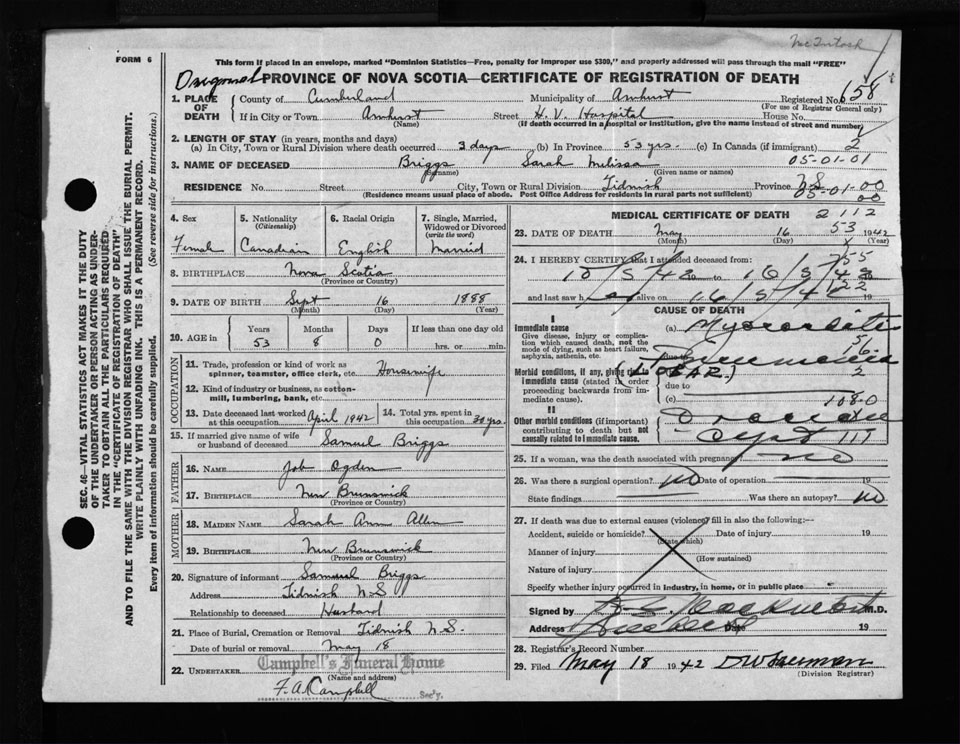 McIntosh
FORM 6
This form if placed in an envelope, marked "Dominion Statistics—Free, penalty for improper use $300," and properly addressed will pass through the mail "FREE"
Original PROVINCE OF NOVA SCOTIA—CERTIFICATE OF REGISTRATION OF DEATH
1. PLACE OF DEATH County of Cumberland Municipality of Amherst Registered No. 658
(For use of Registrar General only)
If in City or Town Amherst Street H. V. Hospital House No.
(Name) (If death occurred in a hospital or institution, give the name instead of street and number)
2. LENGTH OF STAY (in years, months and days)
(a) In City, Town or Rural Division where death occurred 3 days (b) In Province 53 yrs. (c) In Canada (if immigrant) 2
05-01-01
3. NAME OF DECEASED Briggs Sarah Melissa
(Surname) (Given name or names)
RESIDENCE No. Street City, Town or Rural Division Tidnish Province N.S.
(Residence means usual place of abode. Post Office Address for residents in rural parts not sufficient)
05-01-00
00
4. Sex Female
5. Nationality (Citizenship) Canadian
6. Racial Origin English
7. Single, Married, Widowed or Divorced (write the word) Married
8. BIRTHPLACE Nova Scotia
(Province or Country)
9. DATE OF BIRTH Sept 16 1888
(Month) (Day) (Year)
10. AGE in Years 53 Months 8 Days 0 If less than one day old hrs. or min.
OCCUPATION
11. Trade, profession or kind of work as spinner, teamster, office clerk, etc. Housewife
12. Kind of industry or business, as cotton-mill, lumbering, bank, etc.
13. Date deceased last worked at this occupation April 1942
14. Total yrs. spent in this occupation 30 yrs.
15. If married give name of wife or husband of deceased Samuel Briggs
FATHER
16. NAME Job Ogden
17. BIRTHPLACE New Brunswick
(Province or Country)
MOTHER
18. MAIDEN NAME Sarah Ann Allen
19. BIRTHPLACE New Brunswick
(Province or Country)
20. Signature of informant Samuel Briggs
Address Tidnish N.S.
Relationship to deceased Husband
21. Place of Burial, Cremation or Removal Tidnish N.S.
Date of burial or removal May 18
22. UNDERTAKER Campbell's Funeral Home
(Name and address)
F. A. Campbell Sec'y.
MEDICAL CERTIFICATE OF DEATH
2112
53
23. DATE OF DEATH May 16 1942
(Month) (Day) (Year)
24. I HEREBY CERTIFY that I attended deceased from:
10/5/42 to 16/5/42
and last saw her alive on 16/5/42 19
CAUSE OF DEATH
I
Immediate cause
Give disease, injury or complication which caused death, not the mode of dying, such as heart failure, asphyxia, asthenia, etc.
(a) Myocarditis
Pneumonia
(LOBAR)
Morbid conditions, if any, giving rise to immediate cause (stated in order proceeding backwards from immediate cause).
due to
(c) 108-0
II
Other morbid conditions (if important) contributing to death but not causally related to immediate cause.
Ovarian
Cyst
25. If a woman, was the death associated with pregnancy? no
26. Was there a surgical operation? No Date of operation 19
State findings Was there an autopsy? No
27. If death was due to external causes (violence) fill in also the following:—
Accident, suicide or homicide? Date of injury 19
(State which)
Manner of injury
(How sustained)
Nature of injury
Specify whether injury occurred in industry, in home, or in public place
Signed by M.D.
Address Date 19
28. Registrar's Record Number
29. Filed May 18 1942
(Division Registrar)
SEC. 46—VITAL STATISTICS ACT MAKES IT THE DUTY OF THE UNDERTAKER OR PERSON ACTING AS UNDERTAKER TO OBTAIN ALL THE PARTICULARS REQUIRED IN THE "CERTIFICATE OF REGISTRATION OF DEATH"
AND TO FILE THE SAME WITH THE DIVISION REGISTRAR WHO SHALL ISSUE THE BURIAL PERMIT.
WRITE PLAINLY WITH UNFADING INK. THIS IS A PERMANENT RECORD.
Every item of information should be carefully supplied. (See reverse side for instructions.)